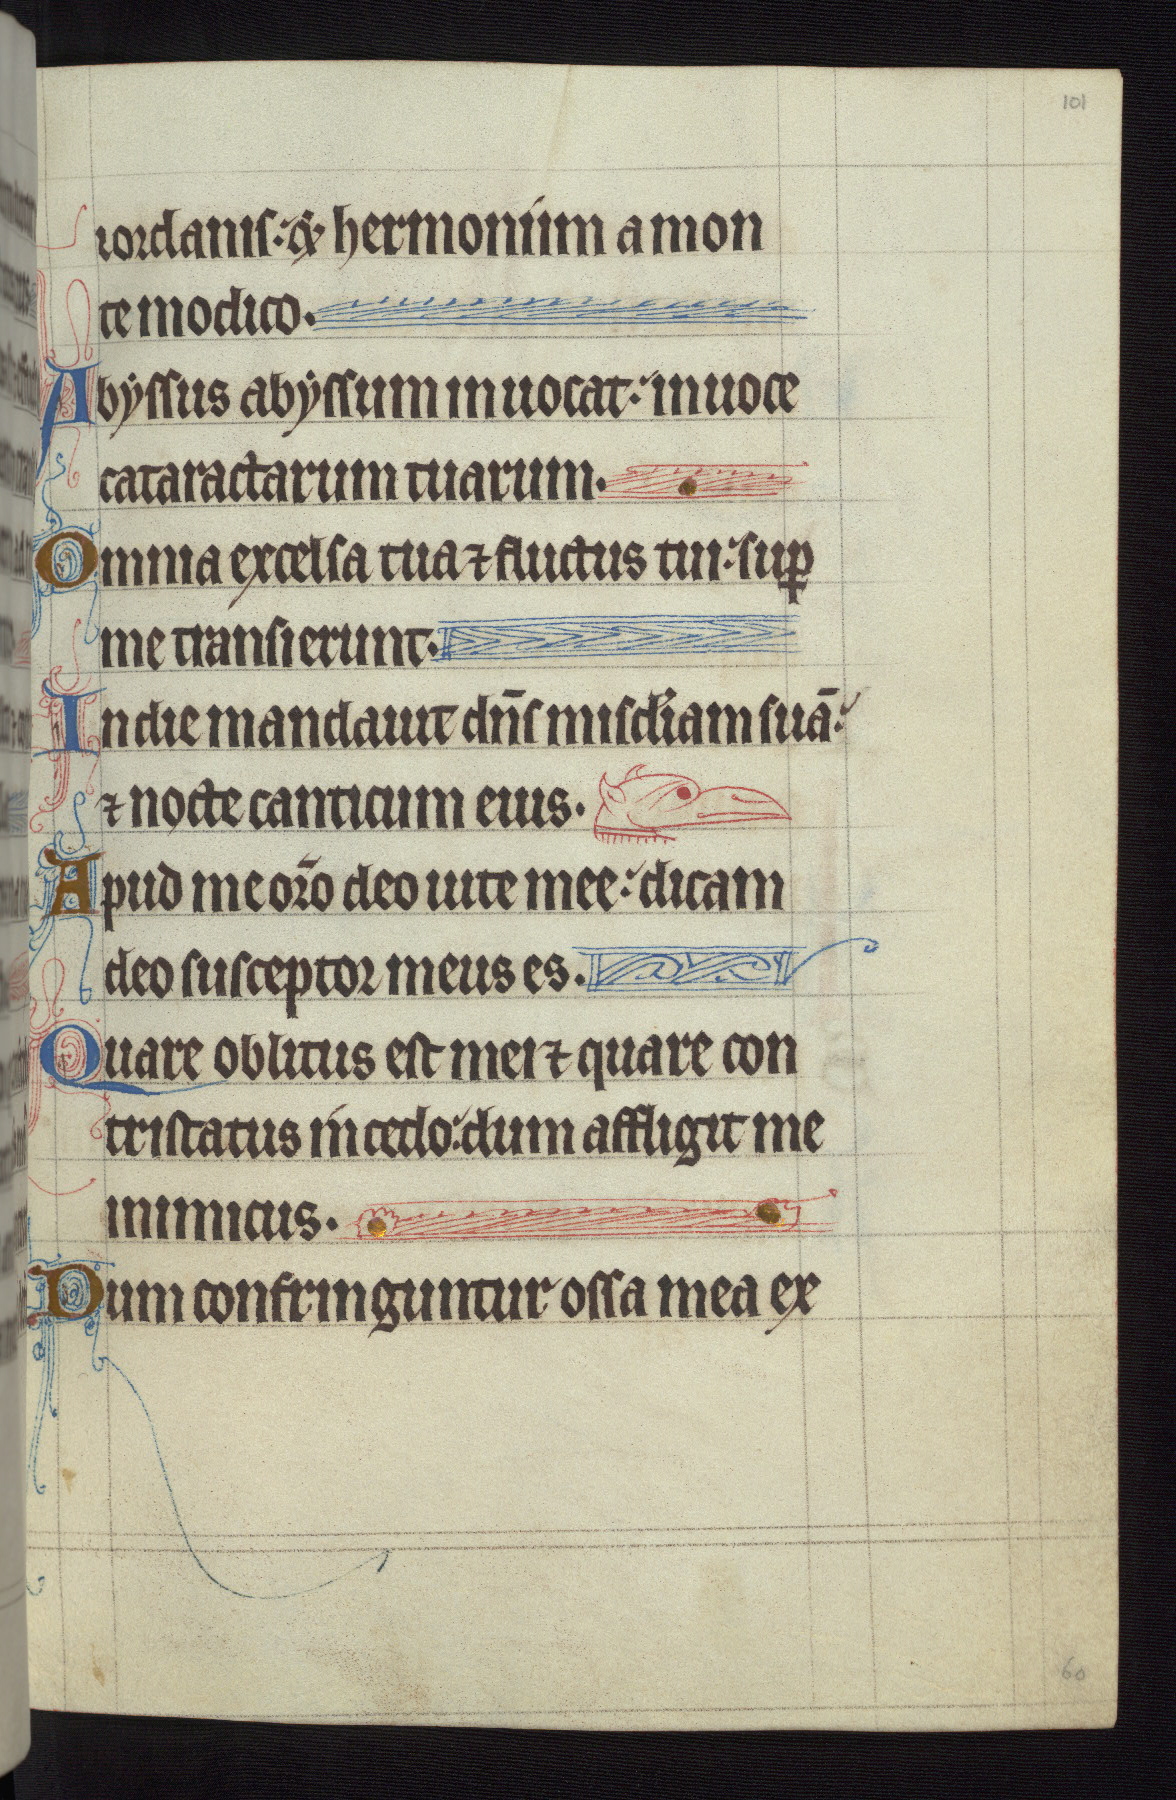 101
iordanis: & hermoniim a mon
te modico.
Abyssus abyssum inuocat: in uoce
cataractarum tuarum.
Omnia excelsa tua ⁊ fluctus tui: suꝑ
me transierunt.
In die mandauit dn̄s misc̄diam suā:
⁊ nocte canticum eius.
Apud me or̄o deo uite mee: dicam
deo susceptor meus es.
Quare oblitus est mei ⁊ quare con
tristatus incedo: dum affligit me
inimicus.
Dum confringuntur ossa mea ex
60